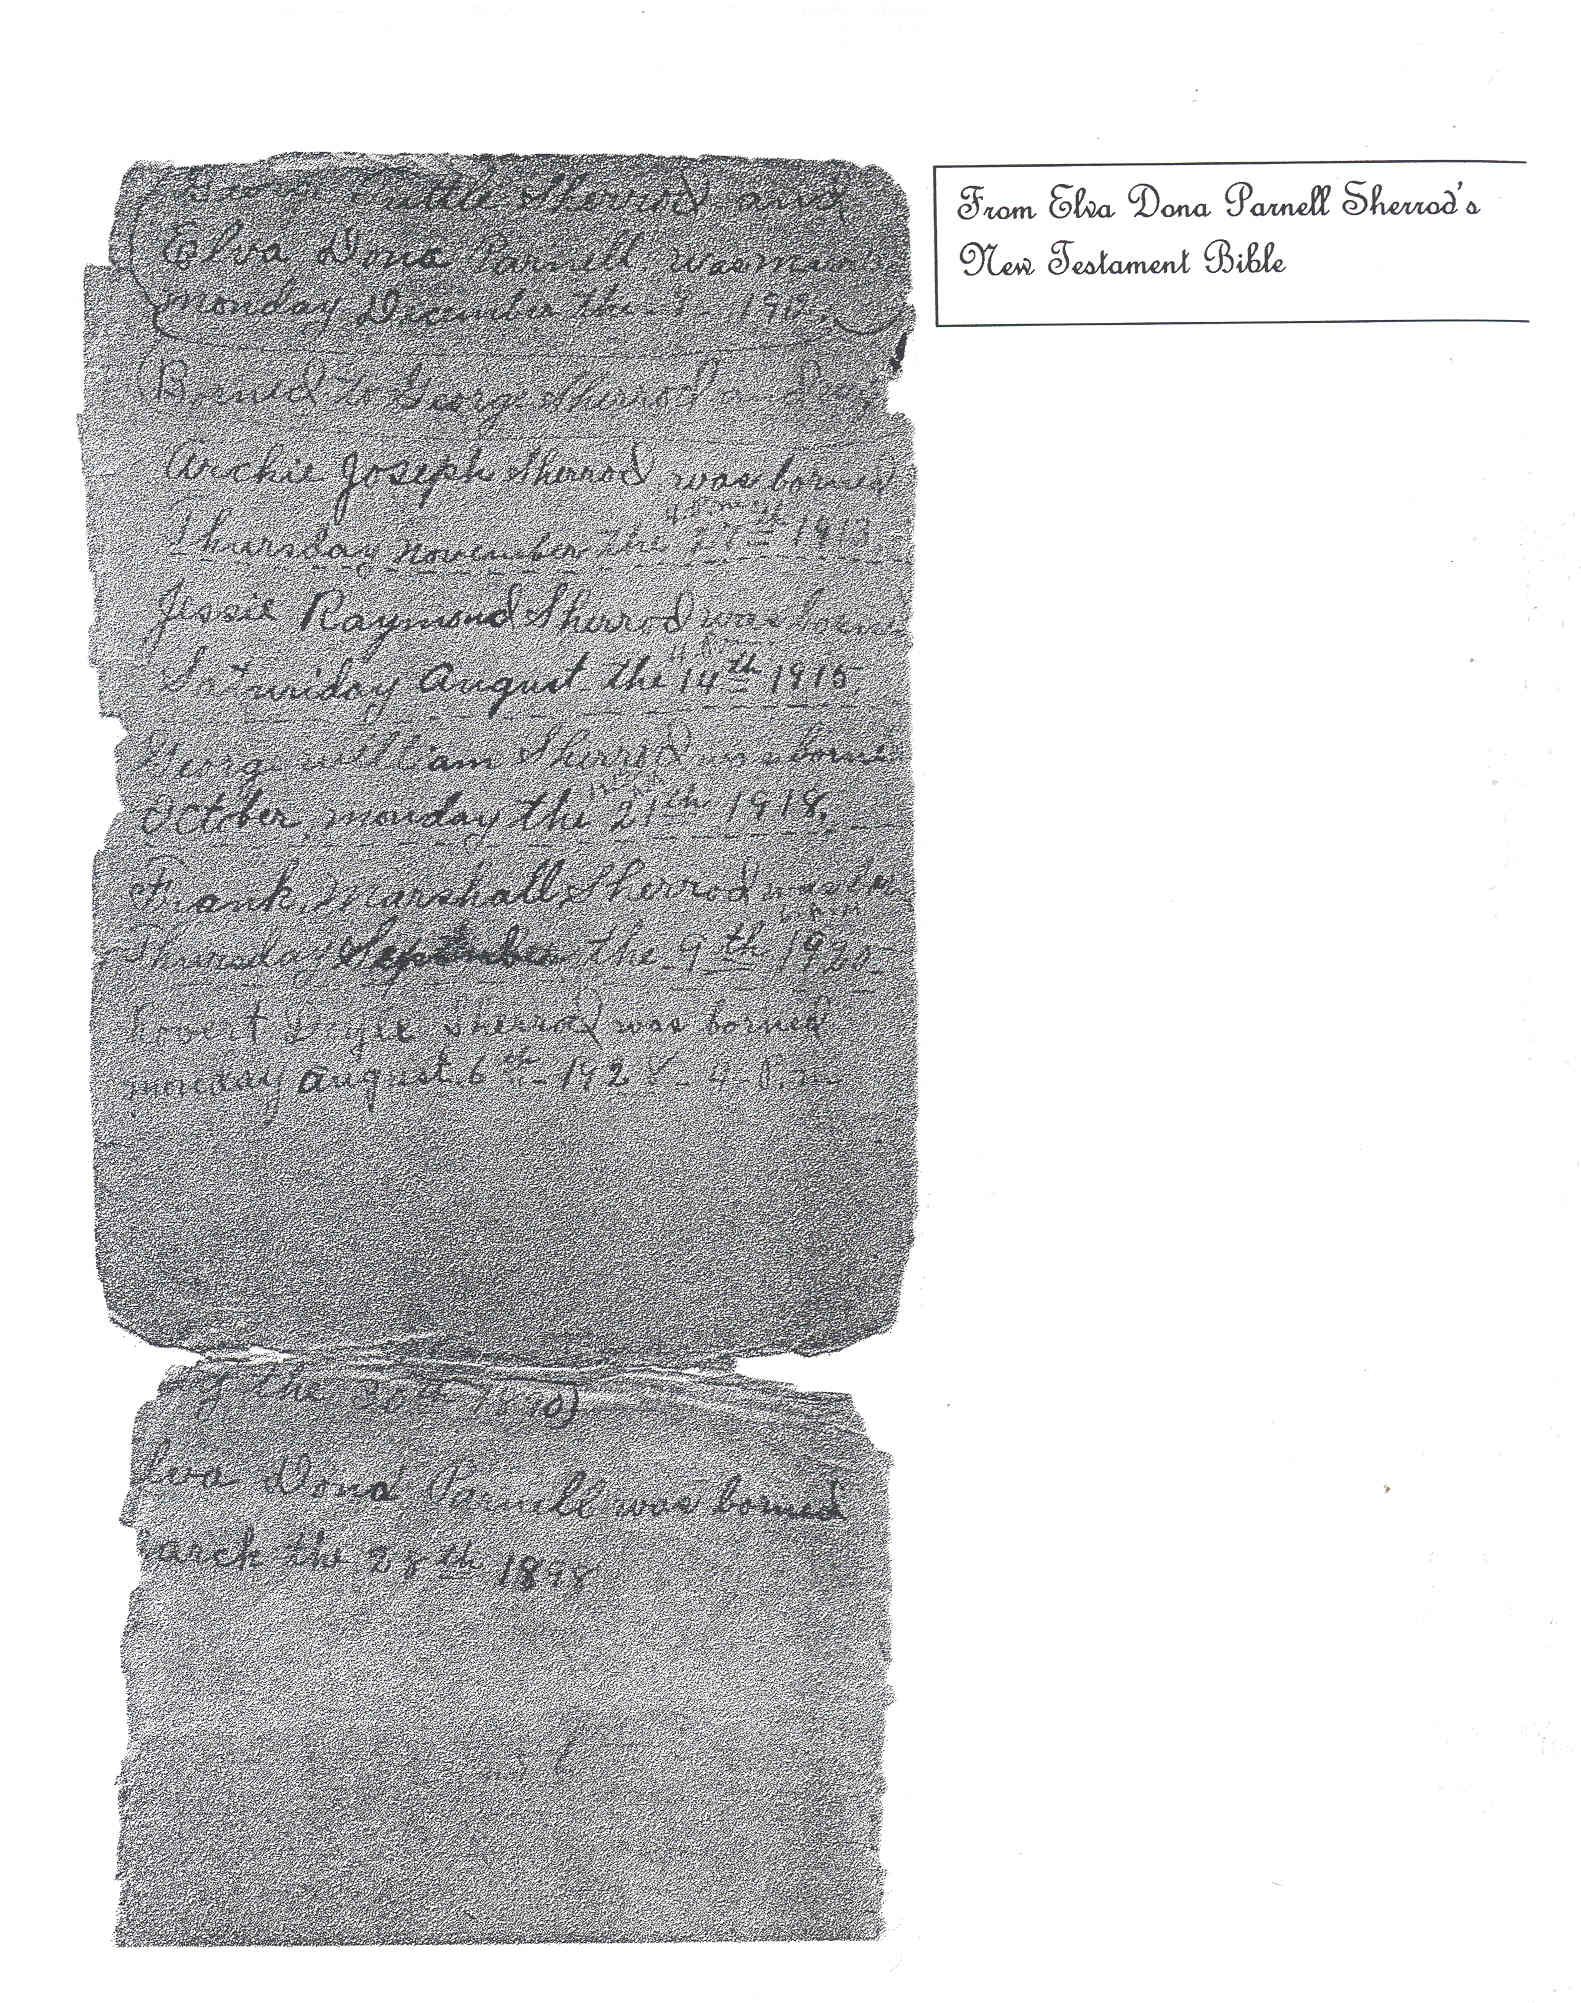 George Tuttle Sherrod and
Elva Dona Parnell was
monday December the 9 - 191
Borned to George Sherrod a
Archie Joseph Sherrod was borned
4 P.m
Thursday november the 27th 1913
Jessie Raymond Sherrod was borned
4 P.m
Saturiday August the 14th 1915
George william Sherrod was borned
October, monday the 21th 1918,
Frank Marshall Sherrod was
Thursday September the 9th 1920
Robert Doyle Sherrod was borned
monday august 6th - 1928 - 4 - P. m
y the 30th 1890)
lva Dona Parnell was borned
arch the 28th 1898
From Elva Dona Parnell Sherrod's
New Testament Bible